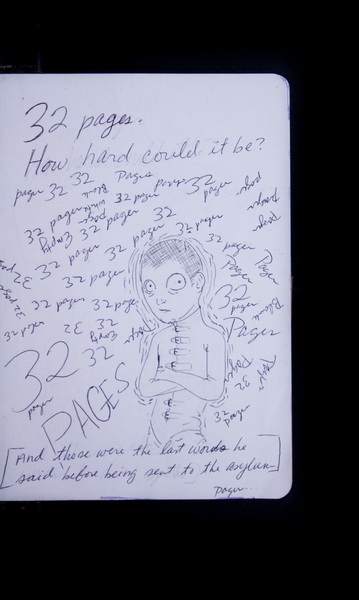 32 pages.
How hard could it be?
pages 32 32 Pages pages 32 pages
Blank
32 pages white 32 pages
Empty 32 pages 32
32 pages 32 pages 32 pages
32 pages 32 pages
32 pages Pages
32 pages 32 pages 32 pages
32 pages 32 Empty 32
32 pages Blank
Pages
32 32
pages
Pages
32
PAGES
32 pages
[And those were the last words he
said before being sent to the asylum]
pages...